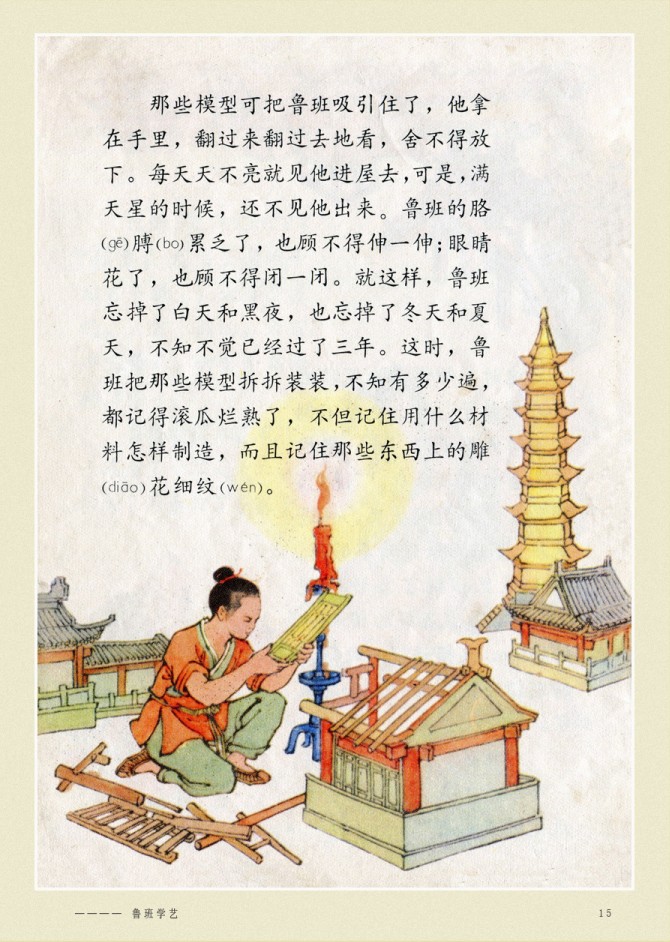 那些模型可把鲁班吸引住了，他拿
在手里，翻过来翻过去地看，舍不得放
下。每天天不亮就见他进屋去，可是，满
天星的时候，还不见他出来。鲁班的胳
(gē)膊(bo)累乏了，也顾不得伸一伸；眼睛
花了，也顾不得闭一闭。就这样，鲁班
忘掉了白天和黑夜，也忘掉了冬天和夏
天，不知不觉已经过了三年。这时，鲁
班把那些模型拆拆装装，不知有多少遍，
都记得滚瓜烂熟了，不但记住用什么材
料怎样制造，而且记住那些东西上的雕
(diāo)花细纹(wén)。
———— 鲁班学艺 15